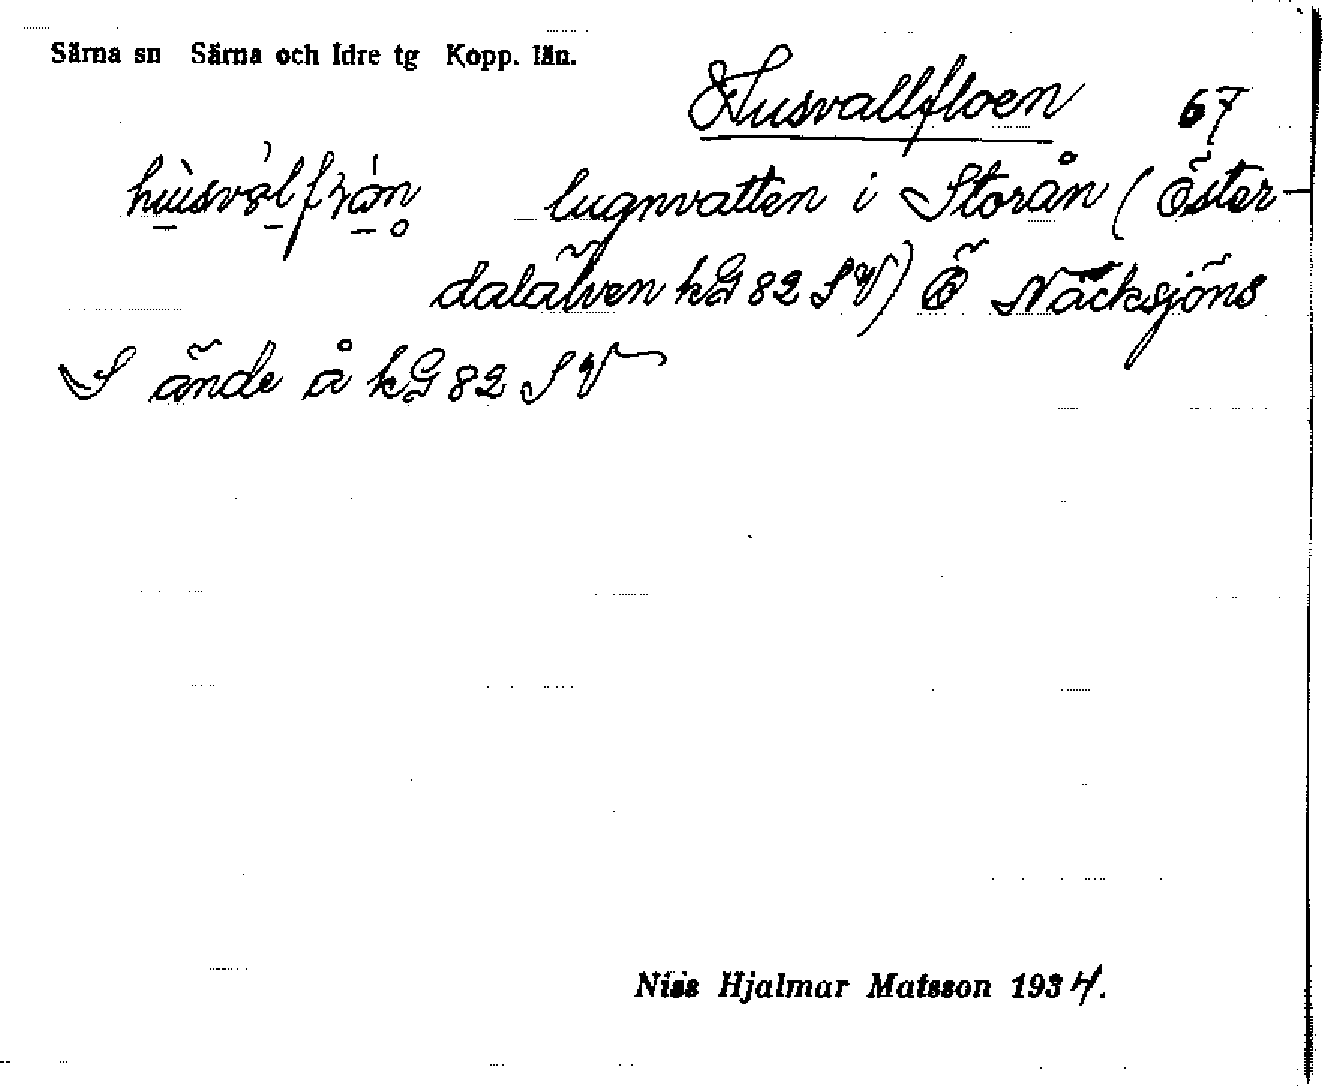 Särna sn Särna och Idre tg Kopp. län.
Husvallfloen 67
lugnvatten i Storån (Öster-
dalälven kG 82 SV) Ö Näcksjöns
S ände å kG 82 SV
Niss Hjalmar Matsson 1934.